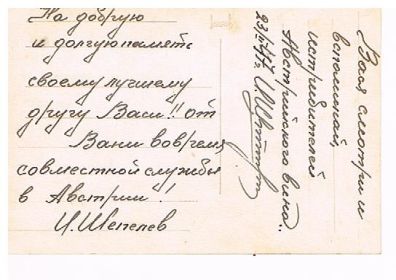 На добрую
и долгую память
своему лучшему
другу Васи!! от
Вани во время
совместной службы
в Австрии!!
И. Шепелев
Вася смотри и
вспоминай,
истребителей
Австрийского вина..
23/IV-47г.